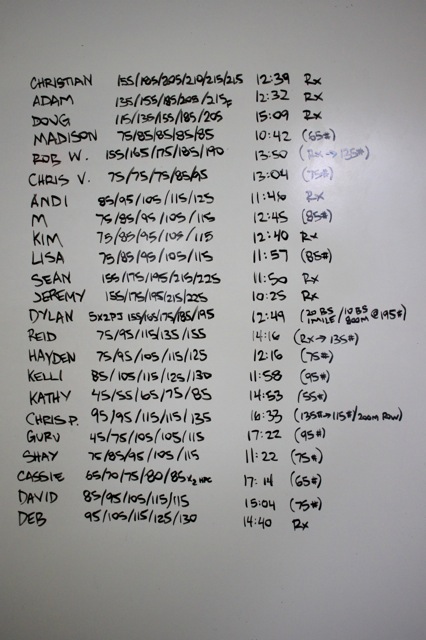 CHRISTIAN 155/185/205/210/215/215 12:39 Rx
ADAM 135/155/185/205/215F 12:32 Rx
DOUG 115/135/155/185/205 15:09 Rx
MADISON 75/85/85/85/85 10:42 (65#)
ROB W. 155/165/175/185/190 13:50 (Rx→135#)
CHRIS V. 75/75/75/85/95 13:04 (75#)
ANDI 85/95/105/115/125 11:46 Rx
M 75/85/95/105/115 12:45 (85#)
KIM 75/85/95/105/115 12:40 Rx
LISA 75/85/95/105/115 11:57 (85#)
SEAN 155/175/195/215/225 11:50 Rx
JEREMY 155/175/195/215/225 10:25 Rx
DYLAN 5x2PJ 155/165/175/185/195 12:49 (20 BS 1 MILE/10 BS 800M @195#)
REID 75/95/115/135/155 14:16 (Rx→135#)
HAYDEN 75/95/105/115/125 12:16 (75#)
KELLI 85/105/115/125/130 11:58 (95#)
KATHY 45/55/65/75/85 14:53 (55#)
CHRIS P. 95/95/115/115/135 16:33 (135#→115#/200M ROW)
GURU 45/75/105/105/115 17:22 (95#)
SHAY 75/85/95/105/115 11:22 (75#)
CASSIE 65/70/75/80/85x2 HPC 17:14 (65#)
DAVID 85/95/105/115/115 15:04 (75#)
DEB 95/105/115/125/130 14:40 Rx